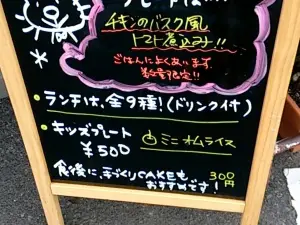 チキンのバスク風
トマト煮込み!!
ごはんによくあいます。
数量限定!!
・ランチは、全9種!(ドリンク付)
・キッズプレート
¥500
ミニオムライス
食後に、手づくりCAKEも
おすすめです!
300円